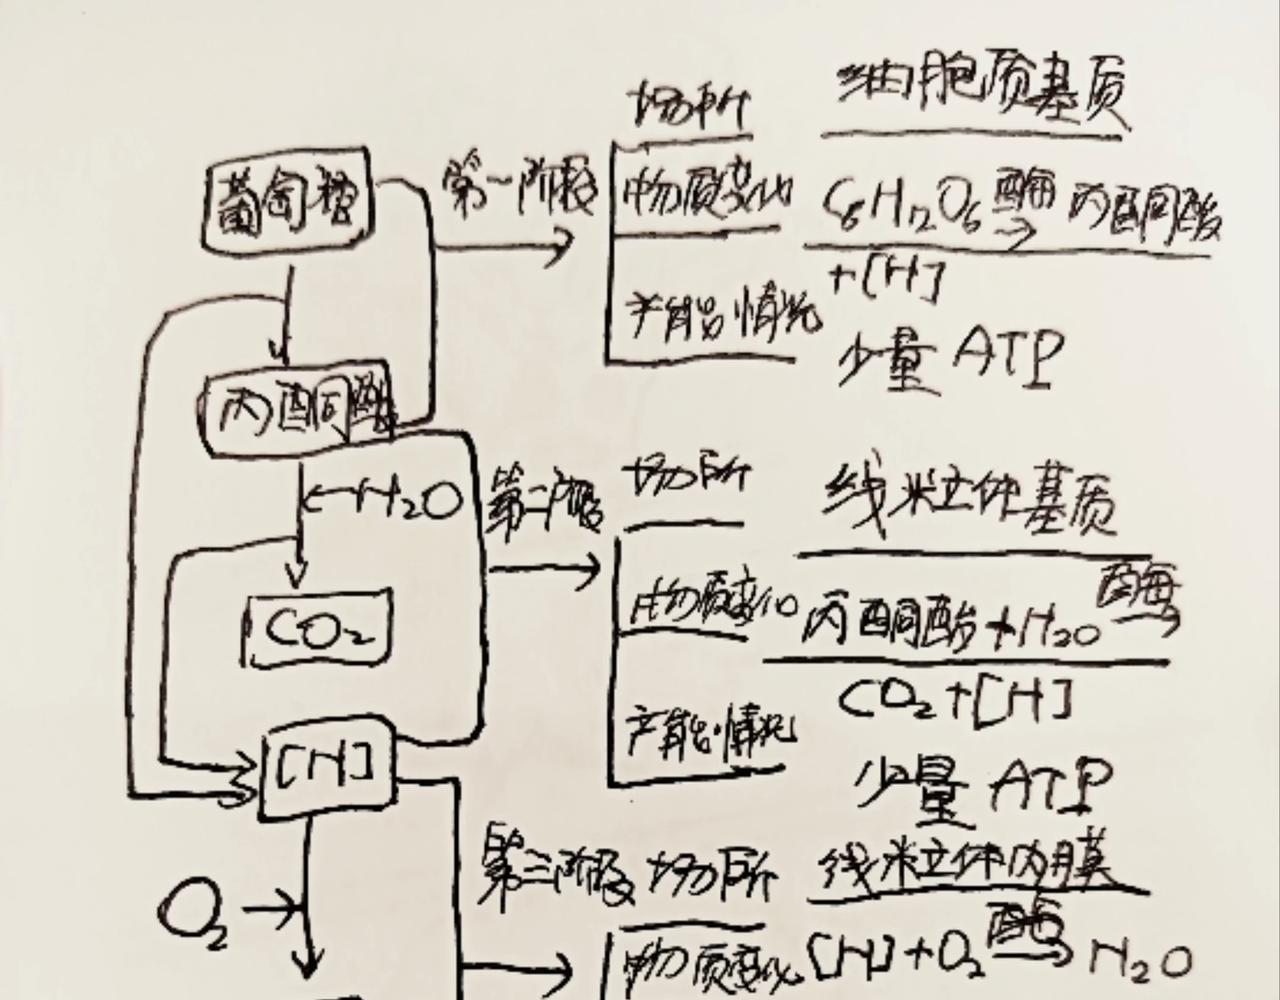 场所 细胞质基质
葡萄糖 第一阶段 物质变化 C6H12O6 酶→ 丙酮酸
+[H]
产能情况 少量 ATP
丙酮酸
←H2O 第二阶段 场所 线粒立体基质
CO2 物质变化 丙酮酸+H2O 酶→
CO2+[H]
产能情况
[H] 少量 ATP
第三阶段 场所 线粒立体内膜
O2→ 物质变化 [H]+O2 酶→ H2O